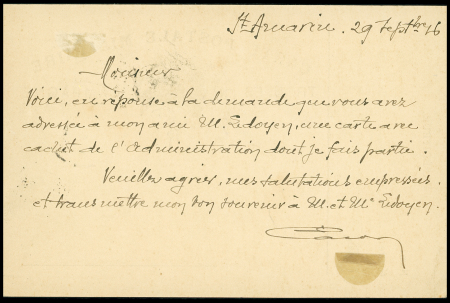 St Amarin. 29 Septbre 16
Monsieur
Voici, en réponse à la demande que vous avez
adressée à mon ami M. Ledoyen, une carte avec
cachet de l'Administration dont je fais partie.
Veuillez agréer, mes salutations empressées
et transmettre mon bon souvenir à M. et Me Ledoyen.